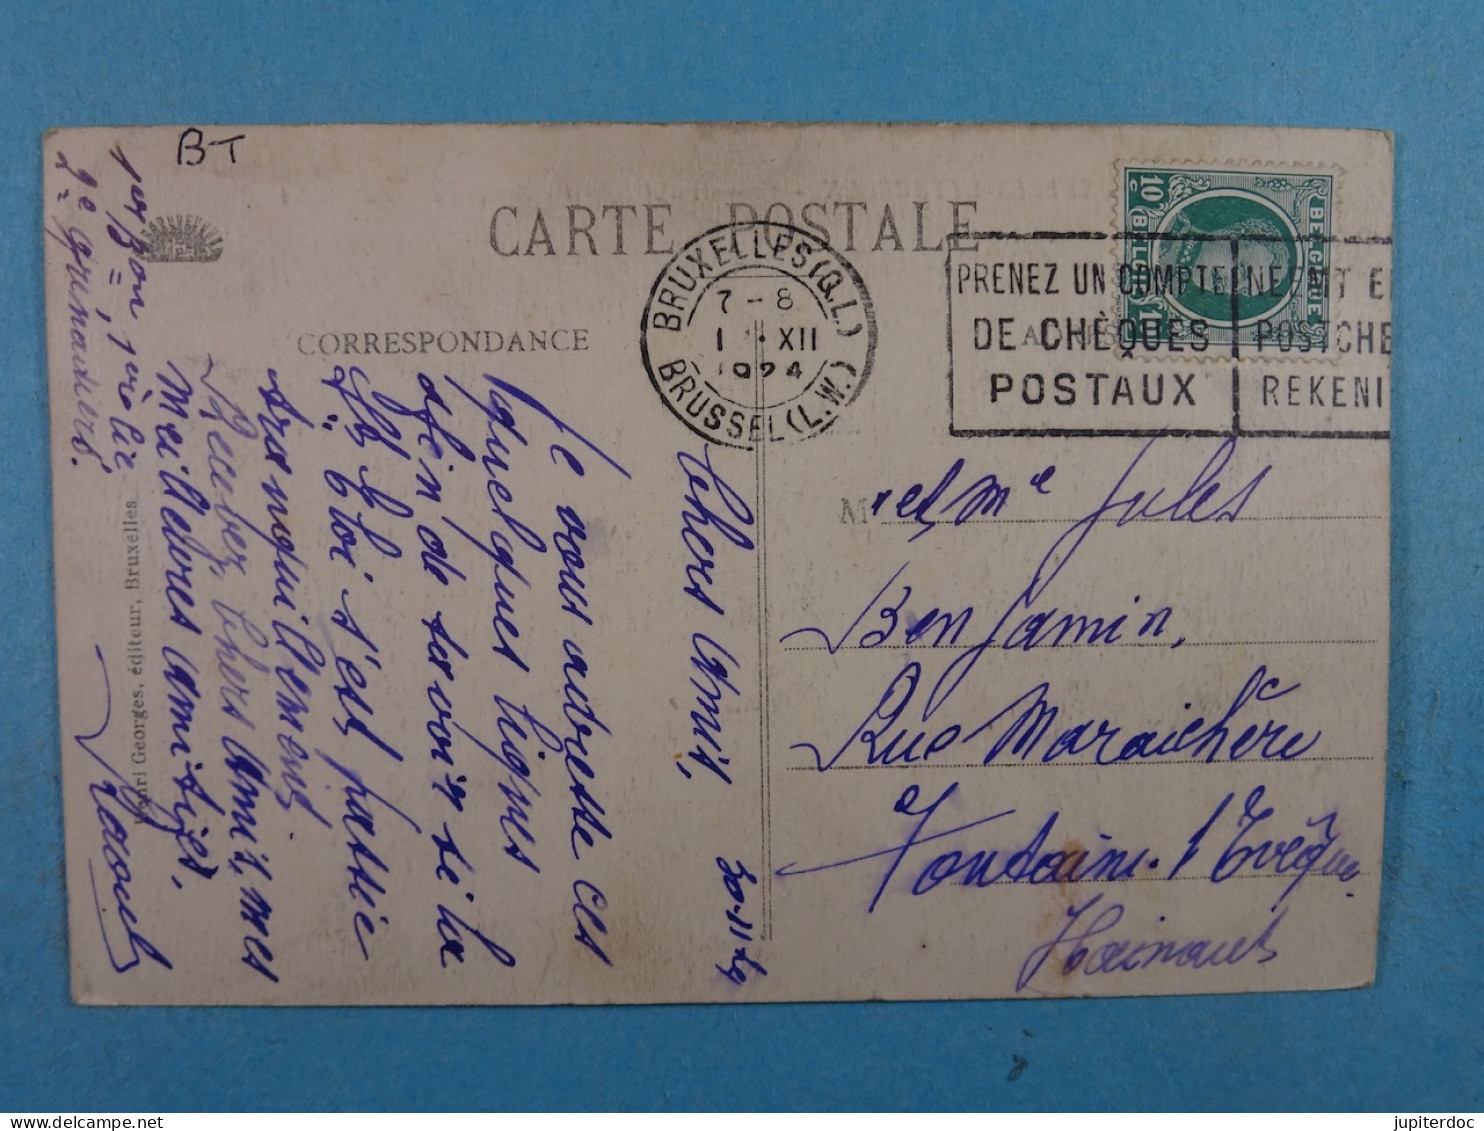 BT
CARTE POSTALE
CORRESPONDANCE
BRUXELLES (Q.L.)
7-8
1 XII
1924
BRUSSEL (L.W.)
PRENEZ UN COMPTE
DE CHÈQUES
POSTAUX
NEEMT E
POSTCHE
REKENI
10 c
BELGIQUE
BELGIË
30-11-24
Chers Amis,
Je vous adresse ces
quelques lignes
afin de savoir si la
St Eloi s'est passée
très
Recevez, Chers Amis, mes
meilleures amitiés.
Raoul
1er Bon,
2e grenadiers.
Henri Georges, éditeur, Bruxelles
Mr et Me Jules
Benjamin,
Rue Maraichère
Fontaine-l'Evêque
Hainaut
jupiterdoc